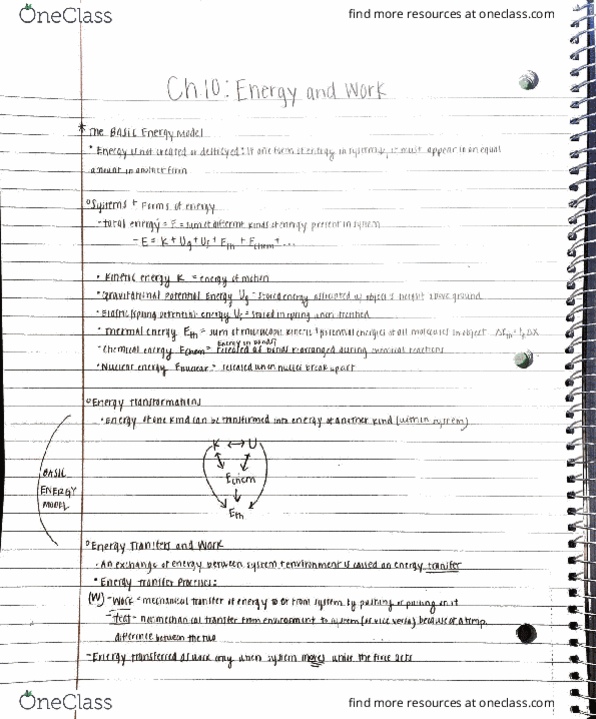 OneClass
find more resources at oneclass.com
Ch.10: Energy and Work
* The BASIC Energy Model
• Energy is not created or destroyed: If one form of energy in system ↓, it must appear in an equal
amount in another form
° Systems + Forms of energy
- total energy = E = sum of different kinds of energy present in system
- E = K + Ug + Us + Eth + Echem + ...
• Kinetic energy K = energy of motion
• Gravitational Potential Energy Ug = stored energy associated w/ object's height above ground
• Elastic/spring potential energy Us = stored in spring when stretched
• Thermal energy Eth = sum of microscopic kinetic + potential energies of all molecules in object ΔEth = fkΔX
(energy in bonds)
• Chemical energy Echem = released as bonds rearranged during chemical reactions
• Nuclear energy Enuclear = released when nuclei break apart
° Energy Transformations
• energy of one kind can be transformed into energy of another kind (within system)
K ↔ U
Echem
Eth
BASIC
ENERGY
MODEL
° Energy Transfers and Work
• An exchange of energy between system + environment is called an energy transfer
• Energy Transfer Processes:
(W) - Work = mechanical transfer of energy to or from system by pushing or pulling on it
- Heat - nonmechanical transfer from environment to system (or vice versa) because of a temp.
difference between the two
- Energy transferred as work only when system moves under the force acts
OneClass
find more resources at oneclass.com